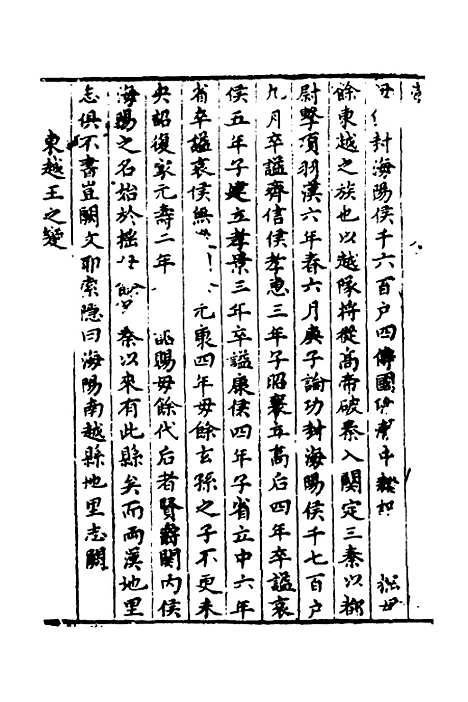 封海陽侯千六百户四傳國
餘東越之族也以越隊將從高帝破秦入關定三秦以都
尉擊項羽漢六年春六月庚子論功封海陽侯千七百户
九月卒謚齊信侯孝惠三年子昭襄立高后四年卒謚哀
侯五年子建立孝景三年卒謚康侯四年子省立中六年
省卒謚哀侯無 元康四年毋餘玄孫之子不更未
央詔復家元壽二年 賜毋餘代后者賢爵関内侯
海陽之名始於摇毋餘 秦以來有此縣矣而兩漢地里
志俱不書豈闕文耶索隱曰海陽南越縣地里志闕
東越王之變